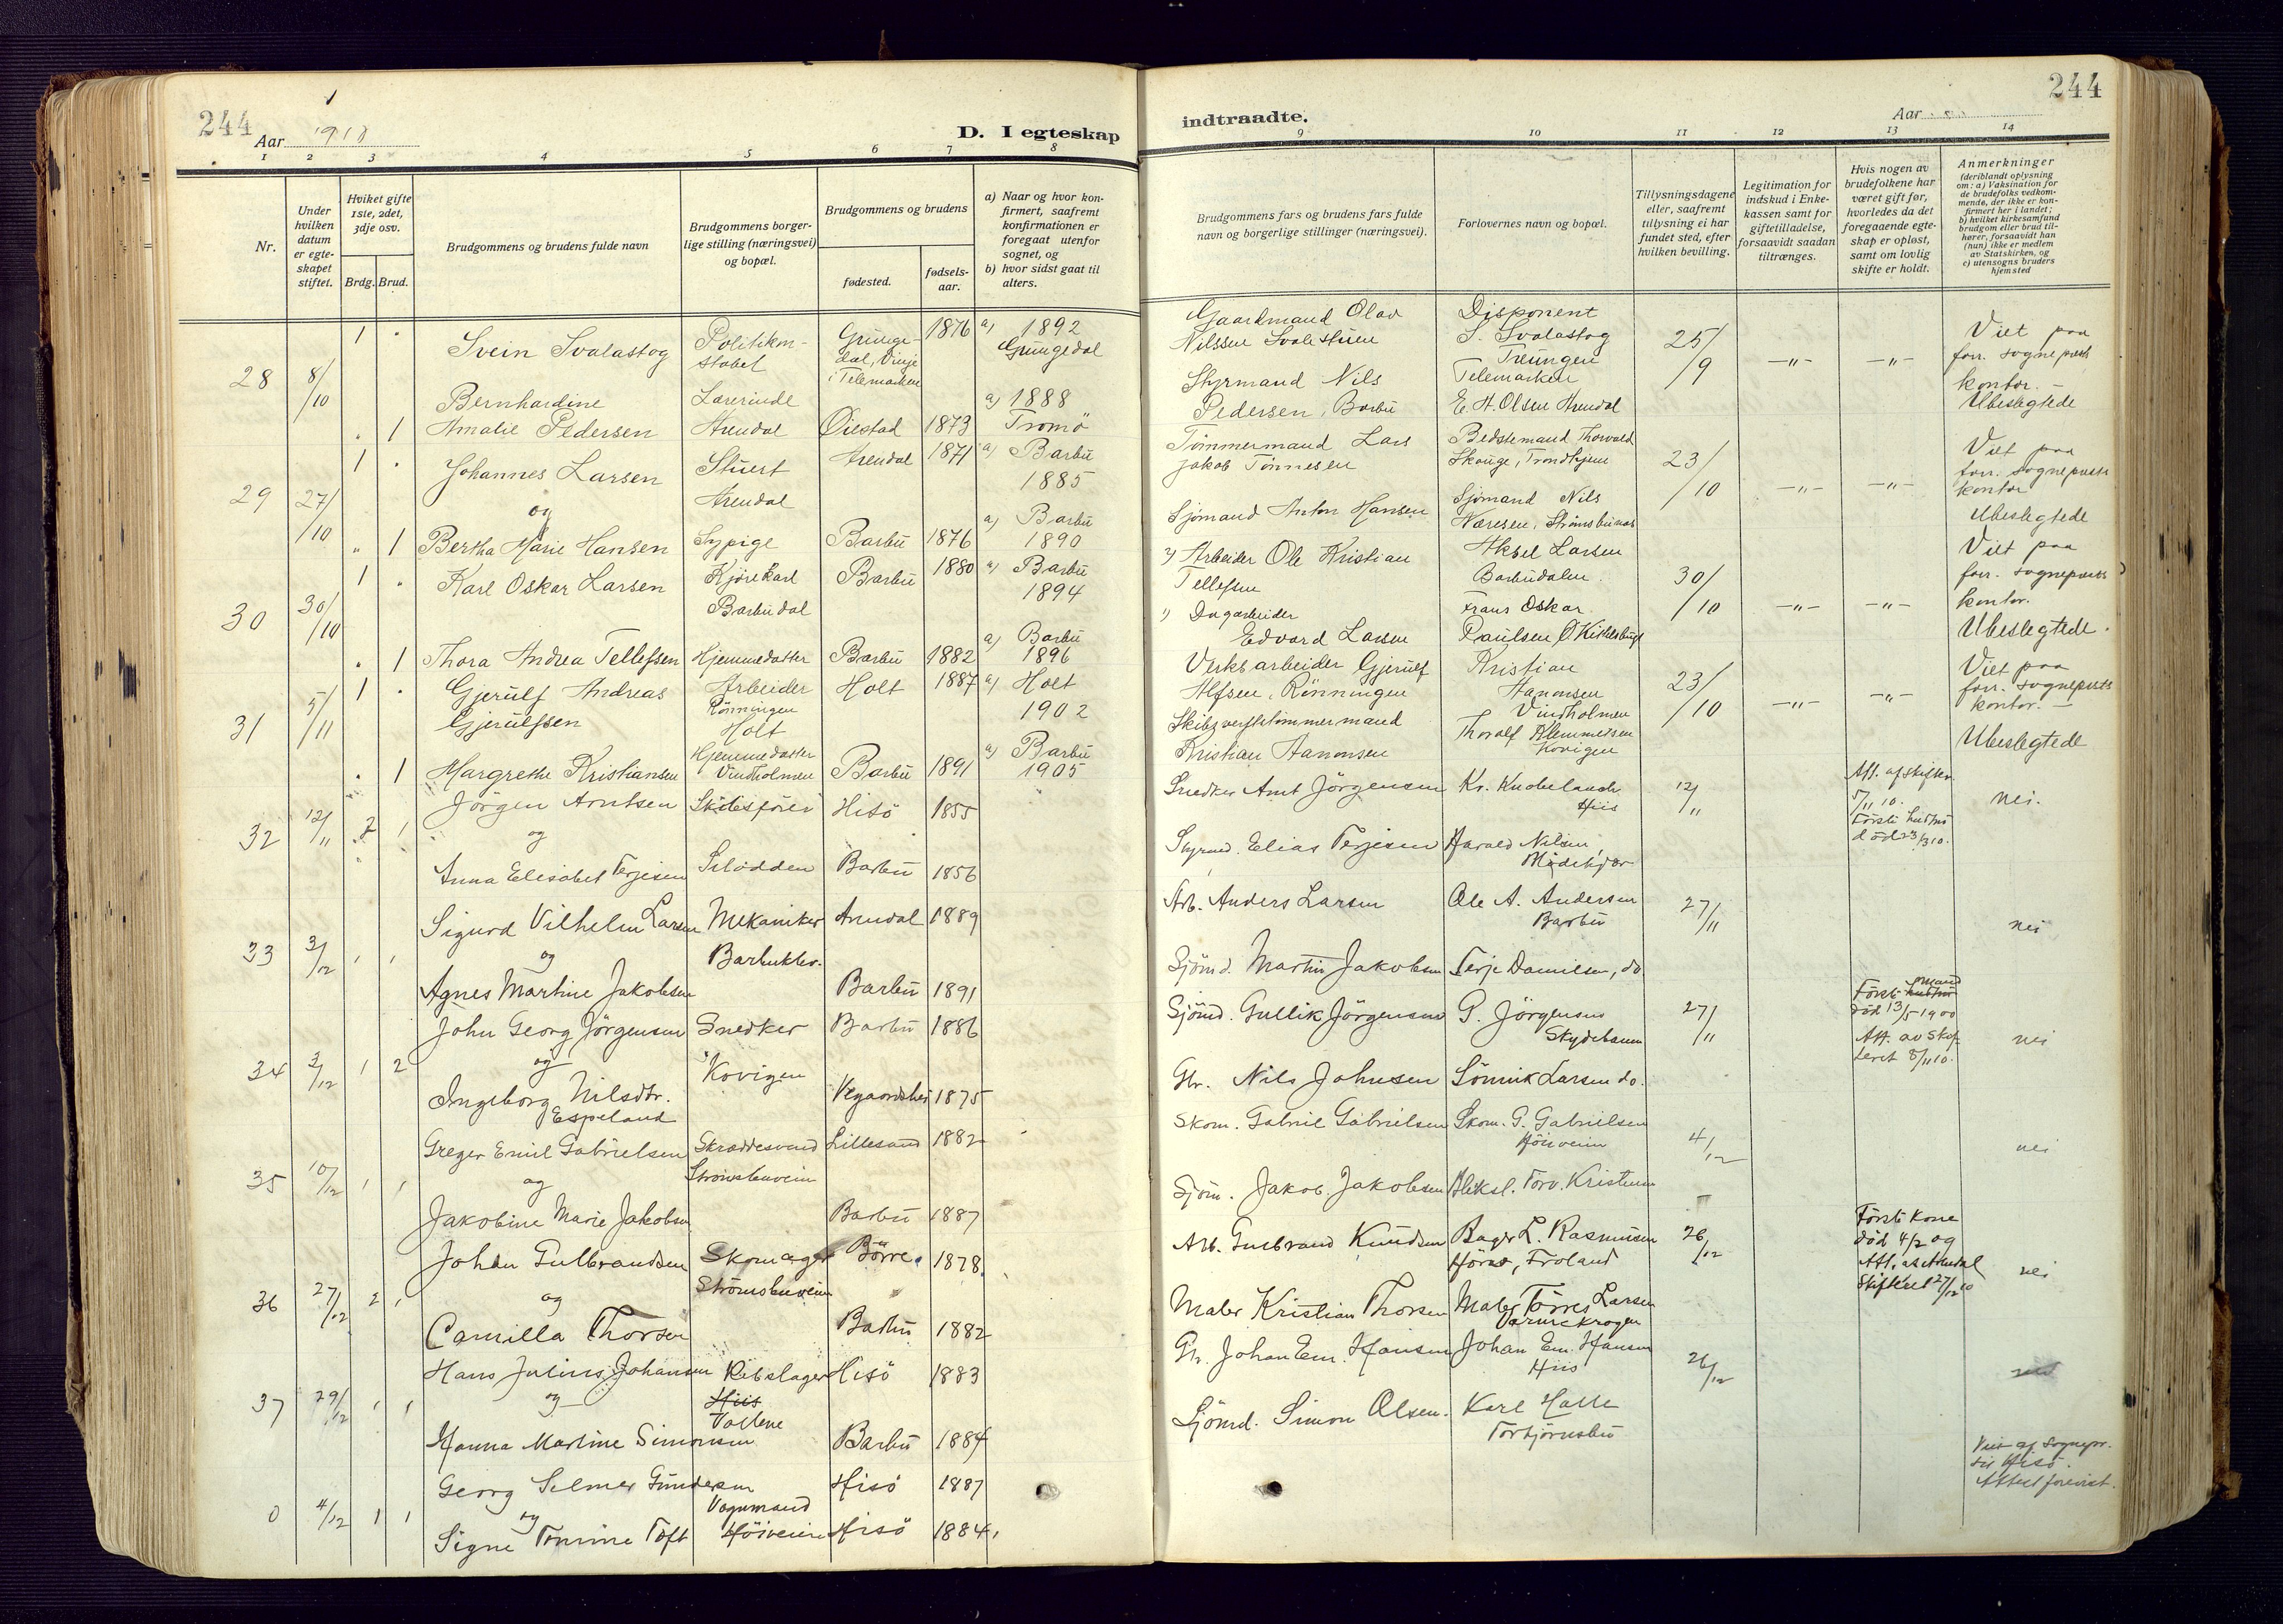 244
244
Aar 1910
D. I egteskap
indtraadte.
Aar
1 2 3 4 5 6 7 8
9 10 11 12 13 14
Nr.
Under hvilken datum er egteskapet stiftet.
Hviket gifte 1ste, 2det, 3dje osv.
Brdg. Brud.
Brudgommens og brudens fulde navn
Brudgommens borgerlige stilling (næringsvei) og bopæl.
Brudgommens og brudens
fødested.
fødselsaar.
a) Naar og hvor konfirmert, saafremt konfirmationen er foregaat utenfor sognet, og
b) hvor sidst gaat til alters.
Brudgommens fars og brudens fars fulde navn og borgerlige stillinger (næringsvei).
Forlovernes navn og bopæl.
Tillysningsdagene eller, saafremt tillysning ei har fundet sted, efter hvilken bevilling.
Legitimation for indskud i Enkekassen samt for giftetilladelse, forsaavidt saadan tiltrænges.
Hvis nogen av brudefolkene har været gift før, hvorledes da det foregaaende egteskap er opløst, samt om lovlig skifte er holdt.
Anmerkninger (deriblandt oplysning om: a) Vaksination for de brudefolks vedkommende, der ikke er konfirmert her i landet; b) hvilket kirkesamfund brudgom eller brud tilhører, forsaavidt han (hun) ikke er medlem av Statskirken, og c) utensogns bruders hjemsted
28 8/10
1 Svein Svalastog Politikonstabel Grungedal, Vinje i Telemarken 1876 a) 1892 Grungedal
1 Bernhardine Amalie Pedersen Lærerinde Arendal Øiestad 1873 a) 1888 Tromö
Gaardmand Olav Nilssen Svalestuen
Styrmand Nils Pedersen, Barbu
Disponent S. Svalastog Treungen Telemarken
E. H. Olsen Arendal
25/9 -"- -"-
Viet paa forr. sogneprests kontor. Ubeslegtede
29 27/10
1 Johannes Larsen Stuert Arendal Arendal 1871 a) Barbu 1885
og
1 Bertha Marie Hansen Sypige Barbu 1876 a) Barbu 1890
Tømmermand Lars Jakob Tönnesen
Sjømand Anton Hansen
Bedstemand Thorvald Skauge, Trondhjem
Sjømand Nils
23/10 -"- -"-
Viet paa forr. sogneprests kontor Ubeslegtede
30 30/10
1 Karl Oskar Larsen Kjörekarl Barbudal Barbu 1880 a) Barbu 1894
1 Thora Andrea Tellefsen Hjemmedatter Barbu 1882 a) Barbu 1896
2) Arbeider Ole Kristian Tellefsen
1) Dagarbeider Edvard Larsen
Aksel Larsen Barbudalen.
Frans Oskar Paulsen
30/10 -"- -"-
Viet paa forr. sogneprests kontor. Ubeslegtede.
31 5/11
1 Gjerulf Andreas Gjerulfsen Arbeider Rönningen Holt Holt 1887 a) Holt 1902
1 Margrethe Kristiansen Hjemmedatter Vindholmen Barbu 1891 a) Barbu 1905
Verksarbeider Gjerulf Alfsen, Rönningen
Skibsverftstömmermand Kristian Aanonsen
Kristian Aanonsen Vindholmen
Thoralf Klemmetsen Kovigen
23/10 -"- -"-
Viet paa forr. sogneprests kontor. Ubeslegtede
32 12/11 2 1
Jörgen Arntsen Skibsförer Hisö 1855
og
Anna Elisabet Terjesen Slodden Barbu 1856
Snedker Arnt Jörgensen
Styrmd. Elias Terjesen
Kr. Knobelauch Hiis
Harald Nilsen,
12/11
Att. af skifter. 5/11 10. Förste hustru död 23/3 10.
nei.
33 3/12 1 1
Sigurd Vilhelm Larsen Mekaniker Arendal 1889
og Barbukler.
Agnes Martine Jakobsen Barbu 1891
Arb. Anders Larsen
Sjömd. Martin Jakobsen
Ole A. Andersen Barbu
Terje Danielsen, do
27/11
nei
34 3/12 1 2
John Georg Jörgensen Snedker Barbu 1886
og Kovigen
Ingeborg Nilsdtr. Espeland Vegaardshei 1875
Sjömd. Gullik Jörgensen
Gbr. Nils Johnsen
G. Jörgensen
Sönnik Larsen do.
27/11
Förste mand död 13/5 1900 Att. av Skifteret 8/11 10.
nei
35 10/12 1 1
Greger Emil Gabrielsen Skræddersvend Lillesand 1882
og Strömsbuveien
Jakobine Marie Jakobsen Barbu 1887
Skom. Gabriel Gabrielsen
Sjöm. Jakob Jakobsen
Skom. G. Gabrielsen Höiveien
4/12
nei
36 27/12 2 1
Johan Gulbrandsen Skomager Börre. 1878.
og Strömsbuveien
Camilla Thorsen Barbu 1882
Arb. Gulbrand Knudsen
Maler Kristian Thorsen
Bager L. Rasmusen Froland
Maler Torres Larsen
26/12
Förste kone död 4/2 09 Att. af Arendal Skifteret 27/12 10
nei
37 29/12 1 1
Hans Julius Johansen Rebslager Hisö 1883
og Hiis
Hanna Martine Simonsen Barbu 1884
Gbr. Johan Em. Hansen
Sjömd. Simon Olsen.
Johan Em. Hansen Hiis
Karl Halle Torbjörnsbu
26/12
nei
0 4/12 1 1
Georg Selmer Gundersen Hisö 1887
og Vognmand
Signe Tomine Toft Höiveien Hisö 1884.
Viet af Sognepr. til Hisö. Attest forevist.